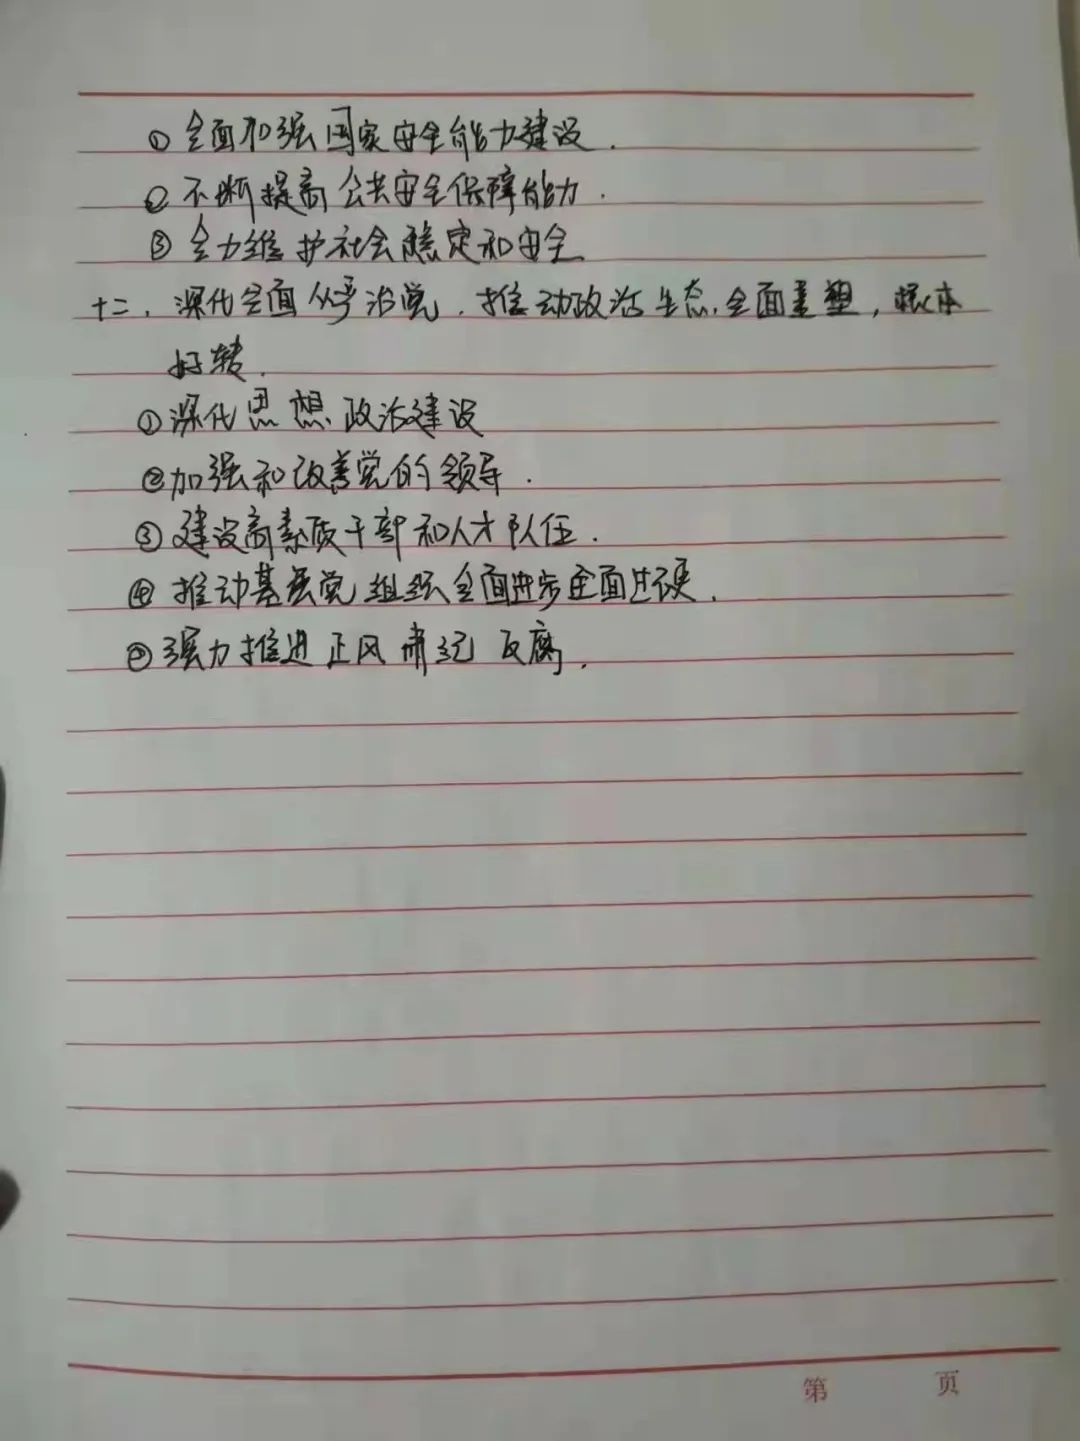 ① 全面加强国家安全能力建设.
② 不断提高公共安全保障能力.
③ 全力维护社会稳定和安全
十二、深化全面从严治党.推动政治生态.全面重塑,根本
好转.
①深化思想政治建设
②加强和改善党的领导.
③建设高素质干部和人才队伍.
④推动基层党组织全面进步全面过硬.
⑤强力推进正风肃纪反腐.
第 页